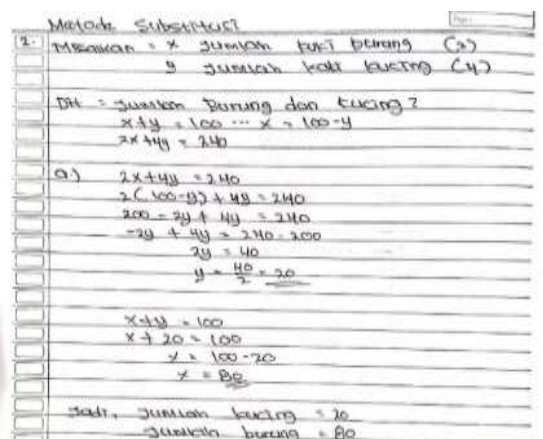 Metode Substitusi
2. Misalkan = x Jumlah kaki burung (2)
y Jumlah kaki kucing (4)
Dit = Jumlah Burung dan kucing?
x+y = 100 ... x = 100-y
2x+4y = 240
a.) 2x+4y = 240
2(100-y) + 4y = 240
200 - 2y + 4y = 240
-2y + 4y = 240-200
2y = 40
y = 40/2 = 20
x+y = 100
x + 20 = 100
x = 100-20
x = 80
Jadi, Jumlah kucing = 20
Jumlah burung = 80